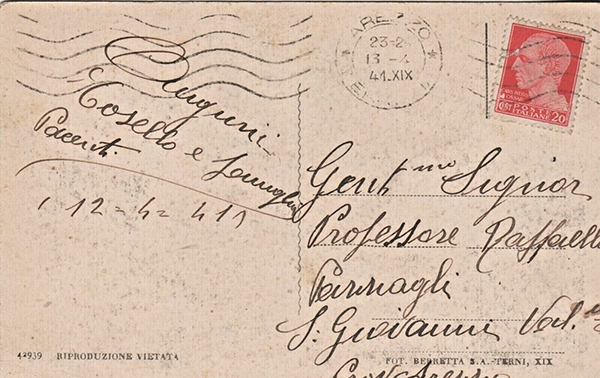 AREZZO
23-2
13-4
41.XIX
POSTE
ITALIANE
20
Auguri
Tosello e famiglia
Pacenti
12=4=41
Gent.mo Signor
Professore Raffaello
S. Giovanni Val.
42939 RIPRODUZIONE VIETATA
FOT. BERRETTA S.A.-TERNI, XIX